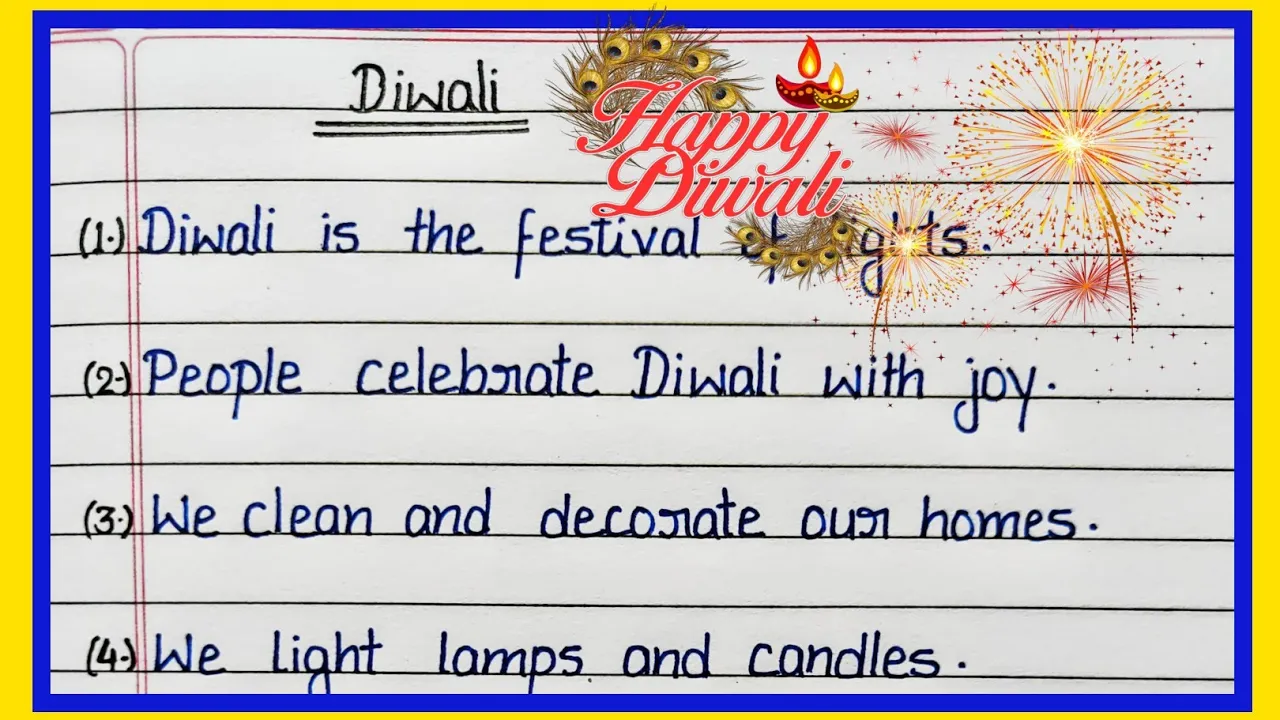 Diwali
Happy
Diwali
(1.) Diwali is the festival of lights.
(2.) People celebrate Diwali with joy.
(3.) We clean and decorate our homes.
(4.) We light lamps and candles.